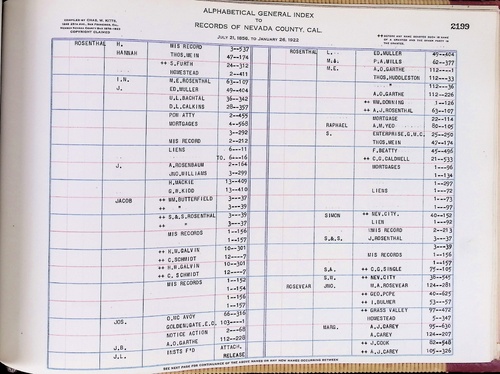 ALPHABETICAL GENERAL INDEX
TO
RECORDS OF NEVADA COUNTY, CAL.
JULY 21, 1856, TO JANUARY 28, 1922
COMPILED BY CHAS. W. KITTS
COPYRIGHT CLAIMED
2199
ROSENTHAL H. MIS RECORD 3--537
HANNAH THOS. MEIN 47--174
++ S. FURTH 24--312
HOMESTEAD 2--411
I.N. M.E. ROSENTHAL 63--107
J. ED. MULLER 49--404
W.L. BACHTAL 36--342
D.L. CALKINS 28--357
POW ATTY 2--455
MORTGAGES 4--568
3--292
MIS RECORD 2--212
LIENS 6--11
TO. 6--16
J. A. ROSENBAUM 2--164
JNO. WILLIAMS 3--299
H. MACKIE 13--409
G.W. KIDD 13--410
JACOB ++ WM. BUTTERFIELD 3--37
++ " 3--39
++ S.& S. ROSENTHAL 3--39
++ " 3--37
MIS RECORDS 1--156
1--157
++ H.W. GALVIN 10--301
++ C. SCHMIDT 12----7
++ H.W. GALVIN 10--301
++ C. SCHMIDT 12----7
MIS RECORDS 1--152
1--154
1--156
1--157
JOS. C. MC AVOY 66--316
GOLDEN.GATE.E.C. 103----1
NOTICE ACTION 2--68
J.B. A.D. GARTHE 112--228
J.L. INSTS F'D ATTACH.
RELEASE
ROSENTHAL L. ED. MULLER 49--404
M.A. P.A. MILLS 62--377
M.E. A.D. GARTHE 112----1
THOS. HUDDLESTON 112--33
" 112--36
A.D. GARTHE 112--226
++ WM. DOWNING 1--126
++ A.J. ROSENTHAL 63--107
MORTGAGE 22--114
RAPHAEL A.M. YEO 80--105
S. ENTERPRISE.G.M.C. 25--250
THOS. MEIN 47--174
F. BEATTY 45--496
++ C.G. CALDWELL 21--533
MORTGAGES 1--96
1--134
1--297
LIENS 1--72
1--73
1--97
SIMON ++ NEV. CITY. 40--152
LIEN 1--92
MIS RECORD 2--213
S.& S. J. ROSENTHAL 3--37
3--39
MIS RECORDS 1--156
1--157
S.A. ++ C.G. SINGLE 75--105
S.W. ++ NEV. CITY 38--545
ROSEVEAR JNO. M.A. ROSEVEAR 124--281
++ GEO. POPE 40--625
++ A. BULMER 53--57
++ GRASS VALLEY 97--472
HOMESTEAD 5--347
MARG. A.J. CAREY 95--630
A. CAREY 124--207
++ J. COOK 82--548
++ A.J. CAREY 105--326